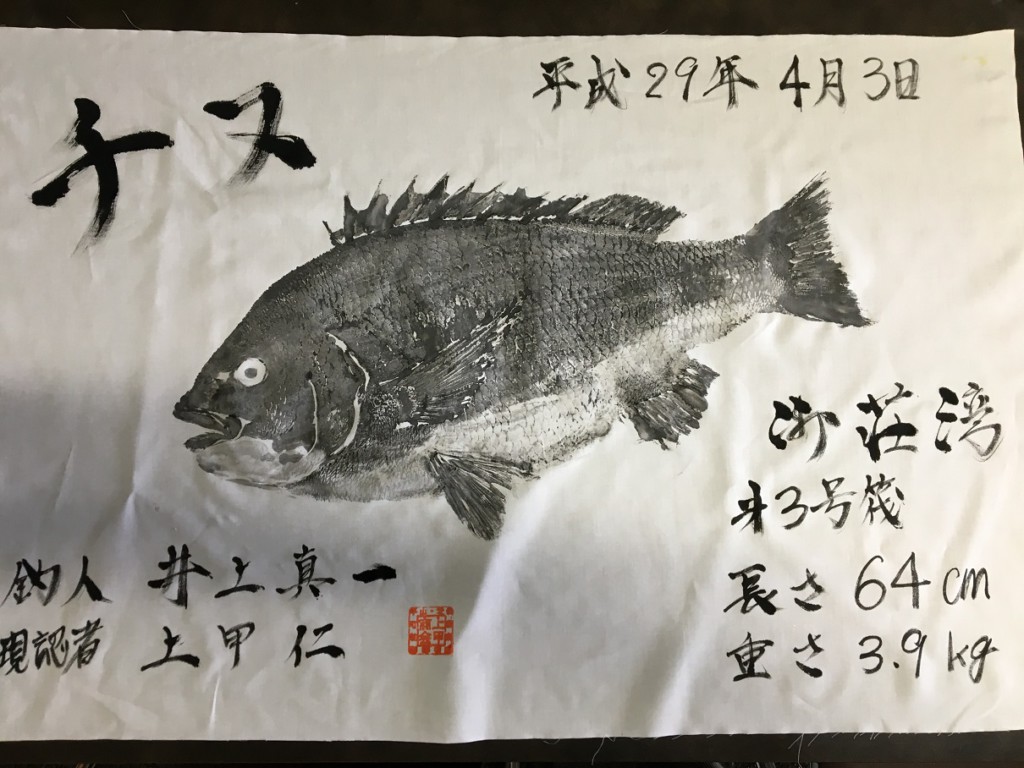 チヌ
平成29年4月3日
御荘湾
才3号筏
長さ 64cm
重さ 3.9kg
釣人 井上真一
現認者 上甲仁